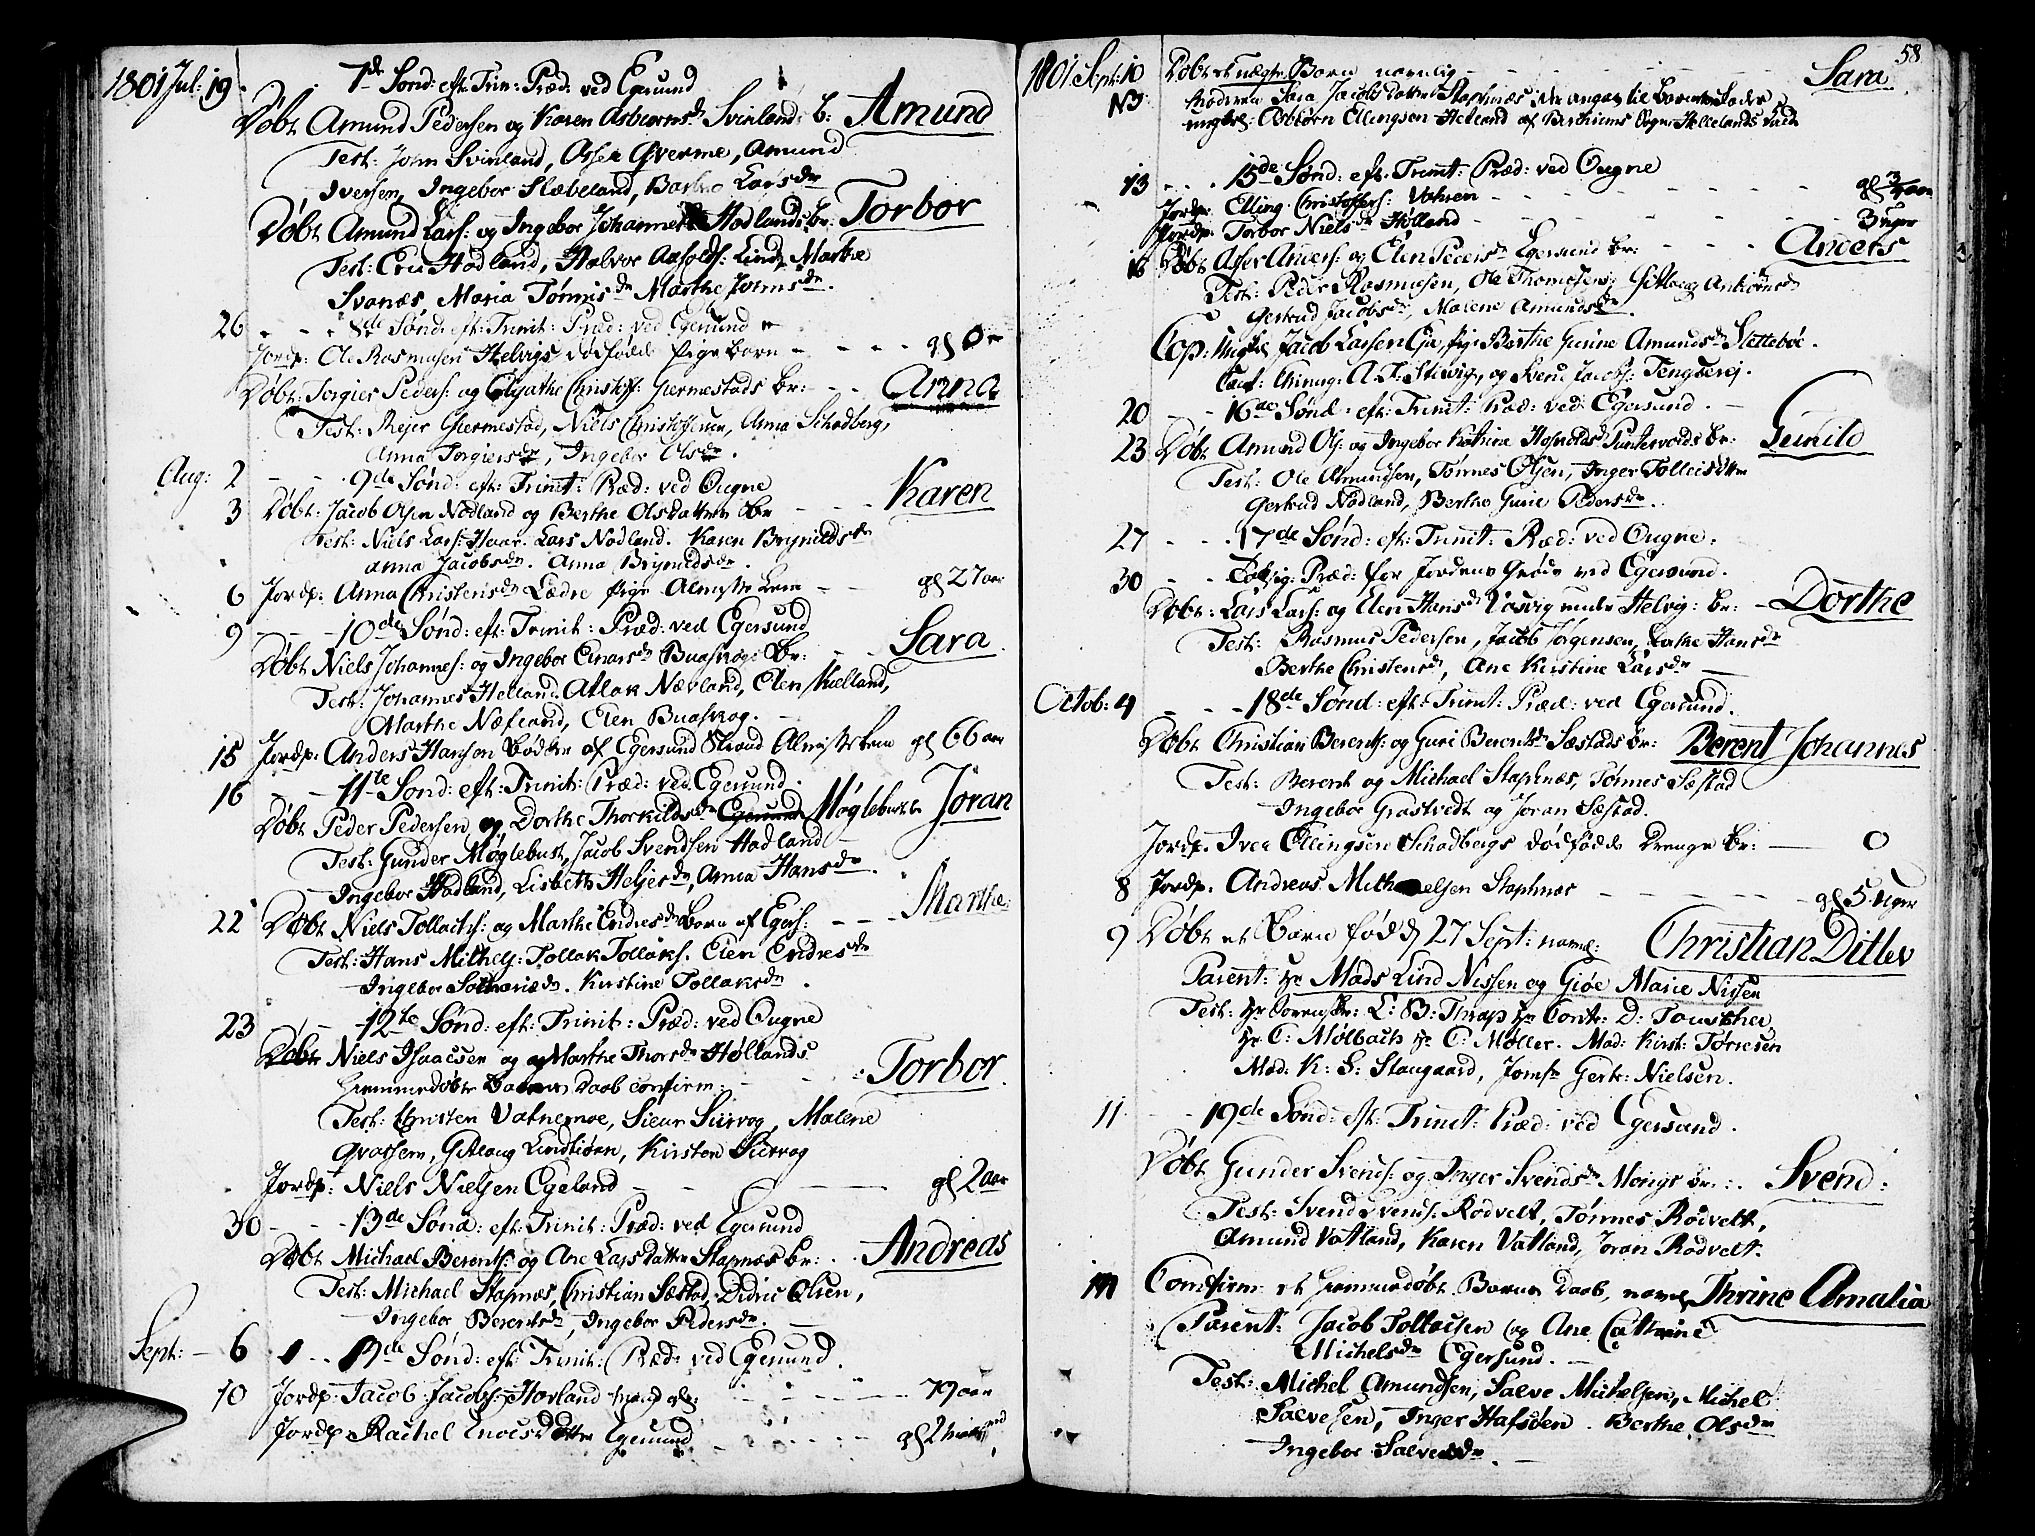 1801 Jul: 19. 7de Sønd: eft: Trin: Præd: ved Egersund
Døbt Amund Pedersen og Karen Asbiørnsdr Svinlands b: Amund
Test: John Svinland, Asser Qverme, Amund
Iversen, Ingebor Slæbeland, Barbro Larsdr
Døbt Amund Lars: og Ingebor Johannes Hadlands br: Torbor
Test: Eric Hodland, Halvor Lind, Marthe
Svanæs, Maria Tønnisdr Marthe
26 - - - 8de Sønd: eft: Trinit: Præd: ved Egersund
Jordp: Ole Rasmusen Helvigs dødfødde Pige barn - - - - gl 0
Døbt: Torgier Peders: og Agathe Christoff: Giermestads br: - - Anna
Test: Rejer Giermestad, Niels Christofersen, Anna Schadberg,
Anna Torgiersdr, Ingebor Olsdr.
Aug: 2 - - - 9de Sønd: eft: Trinit: Præd: ved Ougne
3 Døbt: Jacob Olsen Nødland og Berthe Olsdatter br - - - Karen
Test: Niels Lars: Haar. Lars Nødland. Karen Brynildsdr
Anna Jacobsdr. Anna Brynildsdr.
6 Jordp: Anna Christensdr Lædre Pige Almisse Lem - - gl 27 aar
9 - - - 10de Sønd: eft: Trinit: Præd: ved Egersund
Døbt Niels Johannes: og Ingebor Einarsdr Buaskogs Br: - - Sara
Test: Johannes Helland. Atlak Nævland, Elen Kielland,
Marthe Næfland, Elen Buaskog.
15 Jordp: Anders Hansen Bødker af Egersund Strand Almisse Lem gl 66 aar
16 - - 11te Sønd: eft: Trinit: Præd: ved Egersund.
Døbt Peder Pedersen og Dorthe Thorkildsdr Egersund Møglebusts Joran
Test: Gunder Møglebust, Jacob Svendsen Hadland
Ingebor Hadland, Lisbeth Heljesdr, Anna Hansdr.
22 Døbt Niels Tollachs: og Marthe Endresdr Barn af Egers: - - - Marthe:
Test: Hans Mithels: Tollak Tollaks. Elen Endresdr
Ingebor . Kirstine Tollaksdr.
23 - - - 12te Sønd: eft: Trinit: Præd: ved Ougne
Døbt Niels Isaacsen og Marthe Thorsdr Høllands
hiemmedøbte Barns Daab confirm: - - - Torbor.
Test: Christen Vatnemoe, Sieur Siirvog, Malene
Qvassem, Gitlaug Lindtiørn, Kirsten Siirvog
Jordp: Niels Nielsen Egeland - - - gl 2 aar
30 - - - 13de Sønd: eft: Trinit: Præd: ved Egersund
Døbt Michael Berents: og Ane Larsdatter Stapnæs br: . Andreas
Test: Michael Stapnæs, Christian Sæstad, Didric Olsen,
Ingebor Berentsdr, Ingebor Pedersdr.
Sept: - 6 - - de Sønd: eft: Trinit: Præd: ved Egersund.
10 Jordp. Jacob Jacobs: Horland Mand gl: - - - 79 aar
Jordp Rachel Enocsdotter Egersund - - - gl 2
1801 Sept: 10 Døbt et uægte Barn navnlig - - - Sara. 58
NB: Moderen Sara Jacobsdatter Stapnæs der angav til Barnefader
ungkl: Asbiørn Ellingsen Helleland af Birchrems Sogn Hellelands Præst:
13 . . . 15de Sønd: eft: Trinit: Præd: ved Ougne
Jordp: Elling Christoffers: Vatnem - - - gl 3/4 aar
Jordp: Torbor Nielsdr Hølland - - - 3 uger
16 Døbt Asser Anders: og Elen Pedersdr Egersund br: - - - Anders
Test: Peder Rasmusen, Ole Thomesen, Gitlaug
Gertrud Jacobsdr, Malene Amundsdr.
Cop: Ungkl Jacob Larsen Eje, Pig: Berthe Gurine Amundsdr Slettebøe.
Caut: Chirurg: A. J. Stiwig, og Svend Jacobs: Tengserej.
20 - - - 16de Sønd: eft: Trinit: Præd: ved Egersund. -
23 Døbt Amund Ols: og Ingebor Katrine Puntervolds br: Gunild
Test: Ole Amundsen, Tønnes Olsen, Inger Tolleisdtter
Gertrud Nødland, Berthe Gurie Pedersdr.
27 - - - 17de Sønd: eft: Trinit: Præd: ved Ougne.
30 - - Præd: for Jordens Grøde ved Egersund.
Døbt: Lars Lars: og Elen Hansdr Løsvig Helvig: br: - Dorthe
Test: Rasmus Pedersen, Jacob Jørgensen, Dorthe Hansdr
Berthe Christensdr, Ane Kirstine Larsdr -
Octob: 4 - - - 18de Sønd: eft: Trinit: Præd: ved Egersund.
Døbt Christian Berents: og Guri Berentsdr Sæstads br: Berent Johannes
Test: Berent og Michael Stapnæs, Tønnes Sæstad
Ingebor Grastvedt og Joran Sæstad.
Jordp. Iver Ellingsen Schadbergs dødfødde Drenge Br: - 0
8 Jordp. Andreas Michaelsen Stapnæs - - - gl 5 Uger
9 Døbt et Barn fød d 27 Sept: navnl: Christian Ditlev
Parent: Hr Mads Lind Nissen og Giøe Marie Nissen
Test: Hr Sorenskr: L: B: Thrap Hr Contr: D: Touscher
Hr C: Mølbach Hr C: Møller. Mad: Kirst: Tørresen
Mad: K: S: Stangaard, Jomfr Gertr: Nielsen.
11 - - 19de Sønd: eft: Trinit: Præd: ved Egersund.
Døbt Gunder Svends: og Inger Svendsdr Mongs br: : Svend:
Test: Svend Svends: Rødvelt, Tønnes Rødvelt,
Amund Vatland, Karen Vatland, Joran Rødvelt.
Comfirm et hiemmedøbt Barns Daab, navnl Thrine Amalia
Parent: Jacob Tollaisen og Ane Cathrine
Michelsdr Egersund. -
Test: Michel Amundsen, Salve Michelsen, Michel
Salvesen, Inger Hafsøen. Berthe Olsdr
Ingebor Salvesdr. -